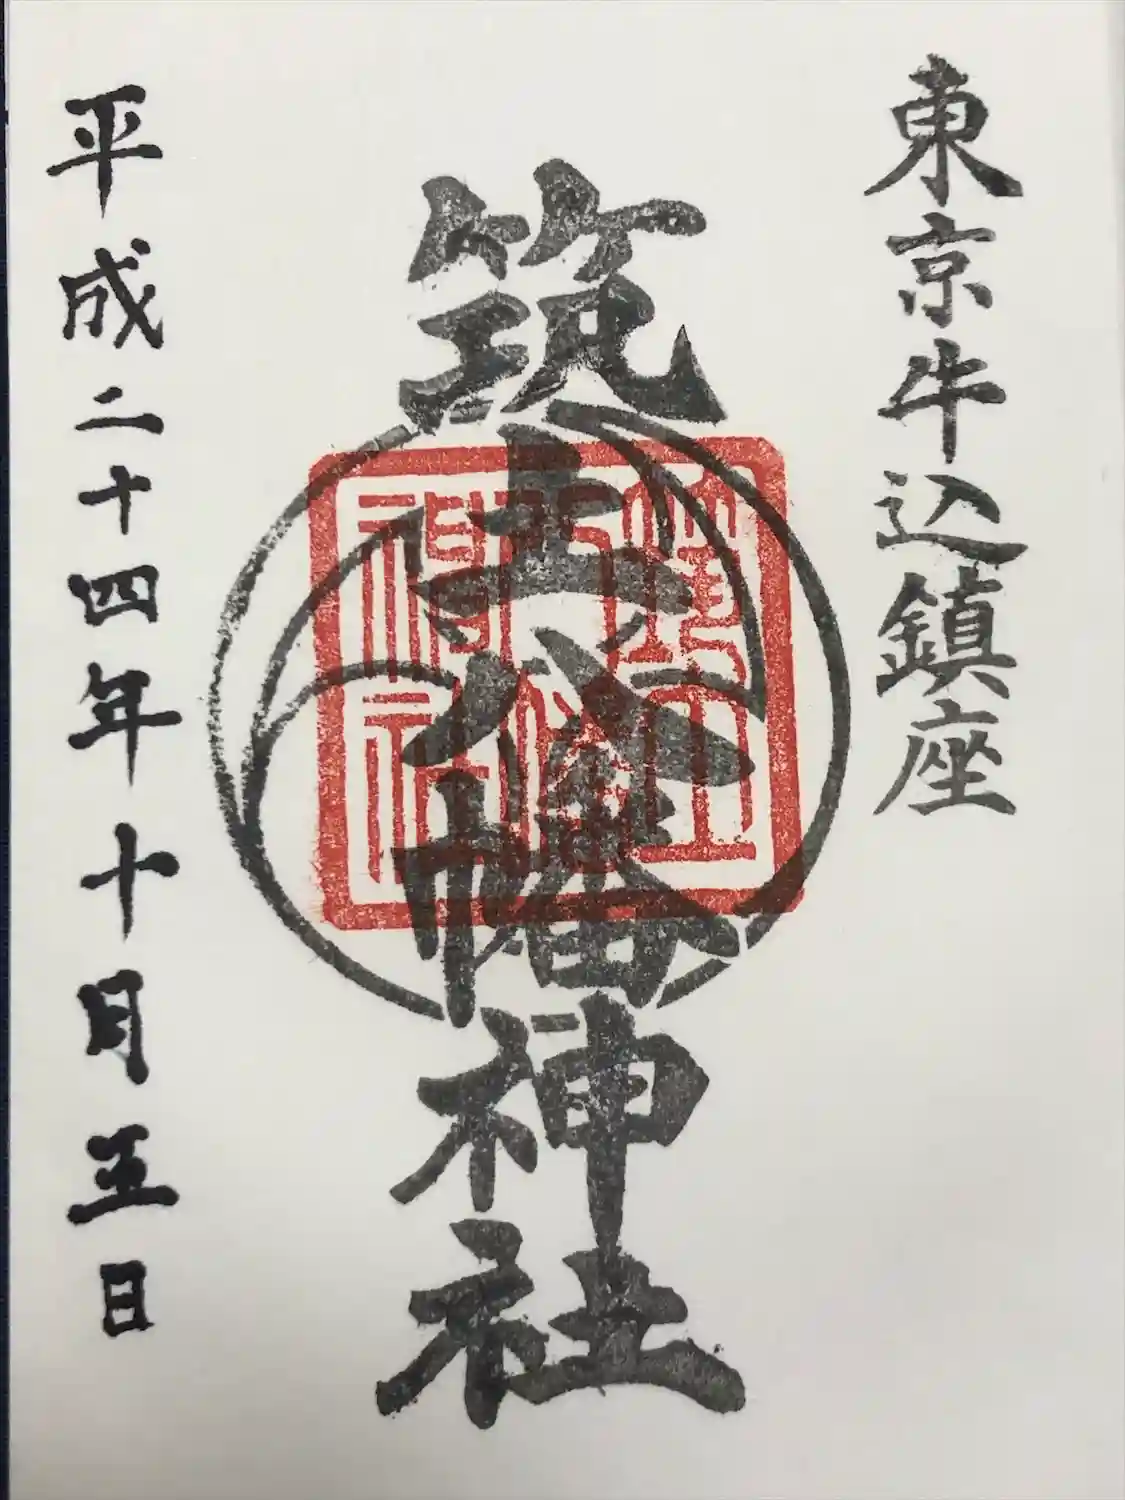 東京牛込鎮座
筑土八幡神社
筑土
八幡
神社
平成二十四年十月五日